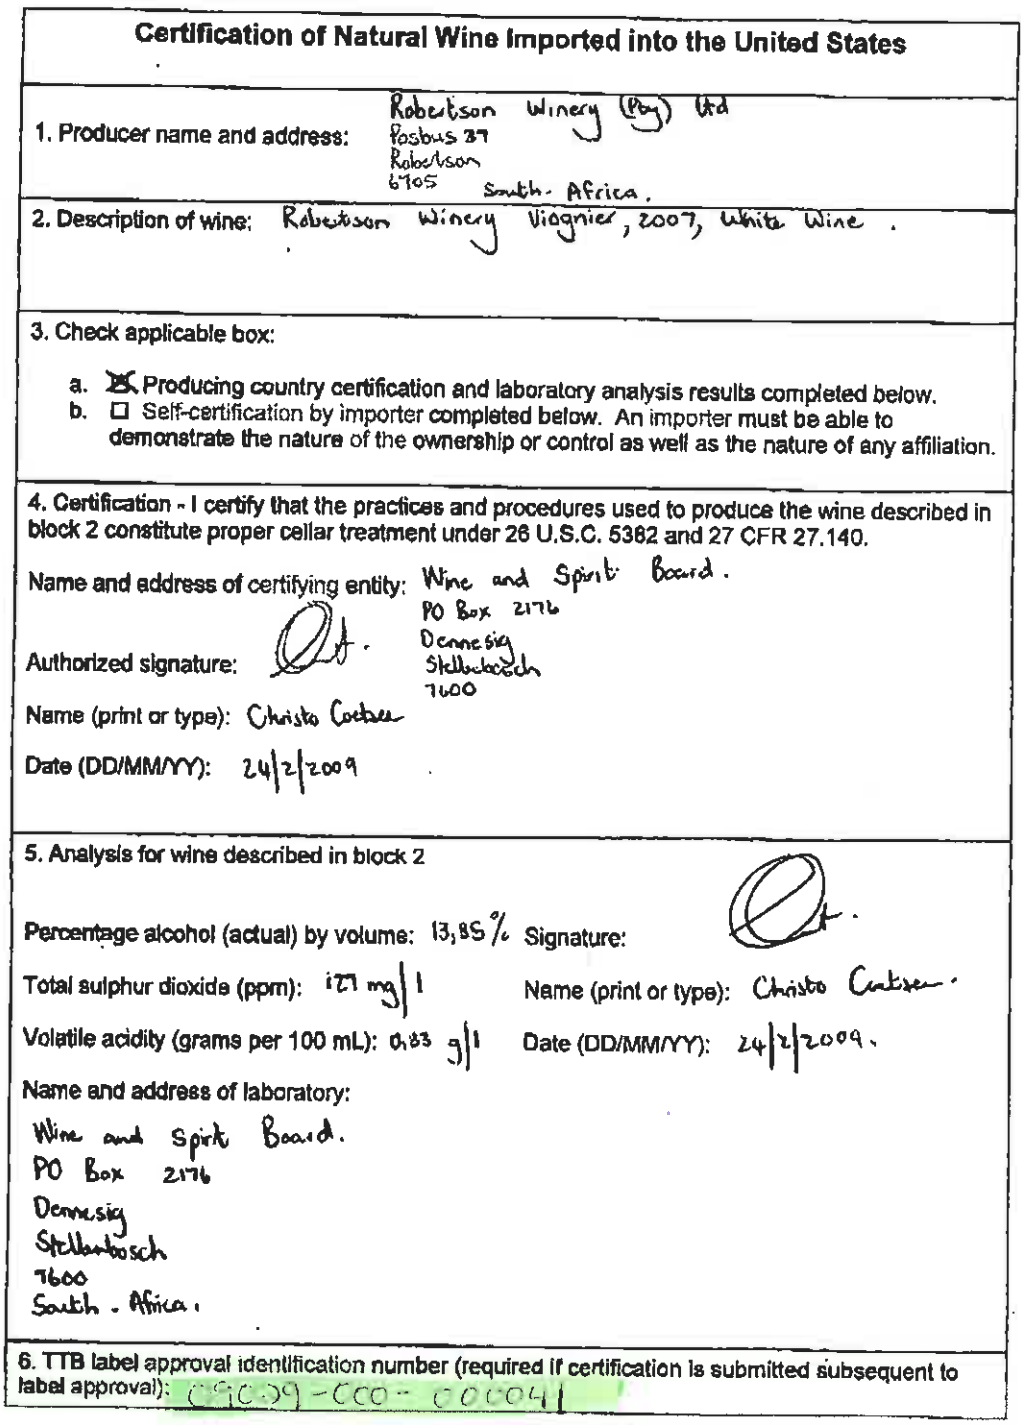 Certification of Natural Wine Imported into the United States
1. Producer name and address:
Robertson Winery (Pty) Ltd
Posbus 37
Robertson
6705 South-Africa.
2. Description of wine: Robertson Winery Viognier, 2007, White Wine.
3. Check applicable box:
a. ☒ Producing country certification and laboratory analysis results completed below.
b. ☐ Self-certification by importer completed below. An importer must be able to
demonstrate the nature of the ownership or control as well as the nature of any affiliation.
4. Certification - I certify that the practices and procedures used to produce the wine described in
block 2 constitute proper cellar treatment under 26 U.S.C. 5382 and 27 CFR 27.140.
Name and address of certifying entity: Wine and Spirit Board.
PO Box 2176
Dennesig
Stellenbosch
7600
Authorized signature:
Name (print or type): Christo Coetsee
Date (DD/MM/YY): 24/2/2009
5. Analysis for wine described in block 2
Percentage alcohol (actual) by volume: 13,85% Signature:
Total sulphur dioxide (ppm): 127 mg/l Name (print or type): Christo Coetsee.
Volatile acidity (grams per 100 mL): 0,33 g/l Date (DD/MM/YY): 24/2/2009.
Name and address of laboratory:
Wine and Spirit Board.
PO Box 2176
Dennesig
Stellenbosch
7600
South-Africa.
6. TTB label approval identification number (required if certification is submitted subsequent to
label approval):